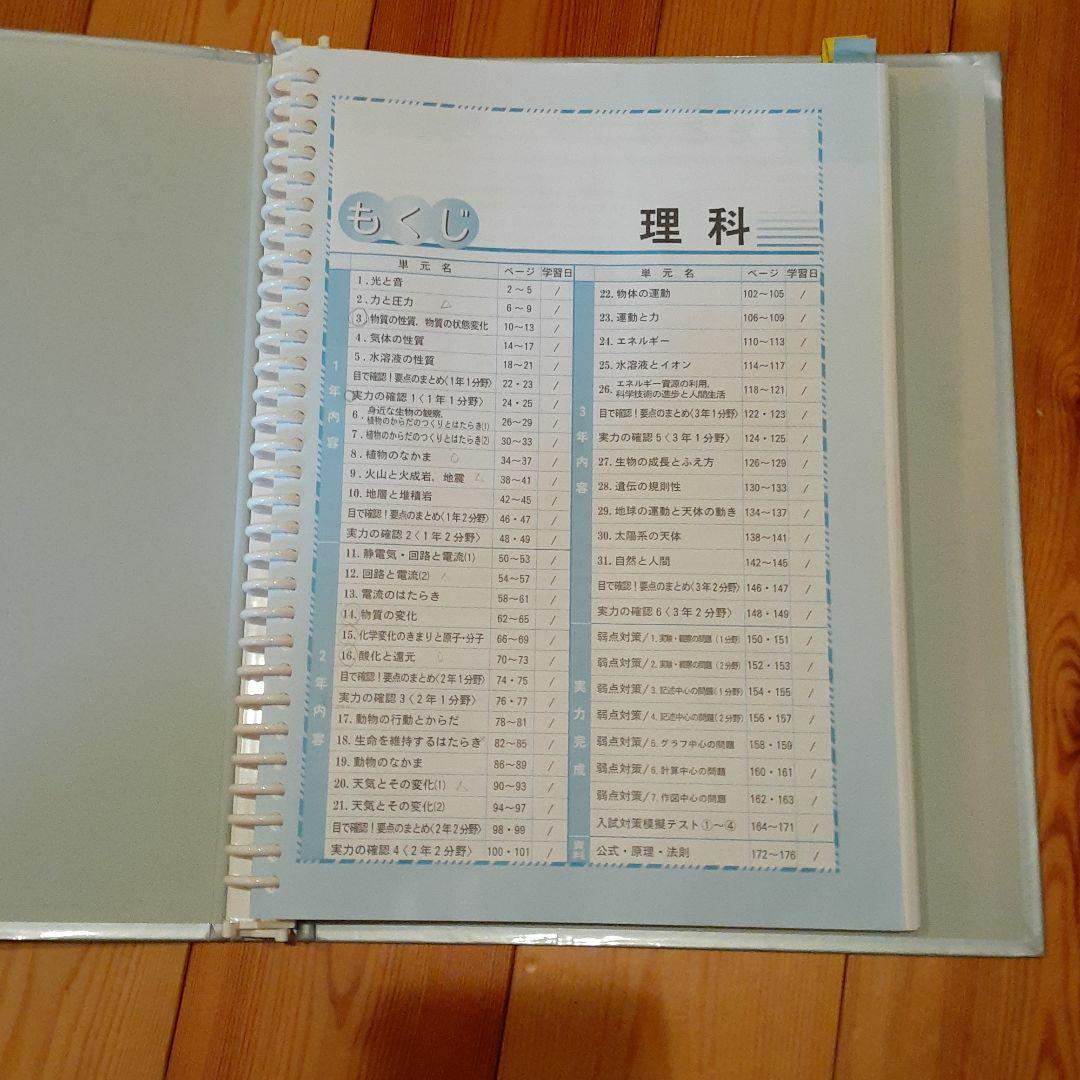 もくじ
理科
単元名 ページ 学習日
1年内容
1.光と音 2～5 /
2.力と圧力 6～9 /
3.物質の性質，物質の状態変化 10～13 /
4.気体の性質 14～17 /
5.水溶液の性質 18～21 /
目で確認！要点のまとめ〈1年1分野〉 22・23 /
実力の確認1〈1年1分野〉 24・25 /
6.身近な生物の観察，
植物のからだのつくりとはたらき(1) 26～29 /
7.植物のからだのつくりとはたらき(2) 30～33 /
8.植物のなかま 34～37 /
9.火山と火成岩，地震 38～41 /
10.地層と堆積岩 42～45 /
目で確認！要点のまとめ〈1年2分野〉 46・47 /
実力の確認2〈1年2分野〉 48・49 /
2年内容
11.静電気・回路と電流(1) 50～53 /
12.回路と電流(2) 54～57 /
13.電流のはたらき 58～61 /
14.物質の変化 62～65 /
15.化学変化のきまりと原子・分子 66～69 /
16.酸化と還元 70～73 /
目で確認！要点のまとめ〈2年1分野〉 74・75 /
実力の確認3〈2年1分野〉 76・77 /
17.動物の行動とからだ 78～81 /
18.生命を維持するはたらき 82～85 /
19.動物のなかま 86～89 /
20.天気とその変化(1) 90～93 /
21.天気とその変化(2) 94～97 /
目で確認！要点のまとめ〈2年2分野〉 98・99 /
実力の確認4〈2年2分野〉 100・101 /
単元名 ページ 学習日
3年内容
22.物体の運動 102～105 /
23.運動と力 106～109 /
24.エネルギー 110～113 /
25.水溶液とイオン 114～117 /
26.エネルギー資源の利用，
科学技術の進歩と人間生活 118～121 /
目で確認！要点のまとめ〈3年1分野〉 122・123 /
実力の確認5〈3年1分野〉 124・125 /
27.生物の成長とふえ方 126～129 /
28.遺伝の規則性 130～133 /
29.地球の運動と天体の動き 134～137 /
30.太陽系の天体 138～141 /
31.自然と人間 142～145 /
目で確認！要点のまとめ〈3年2分野〉 146・147 /
実力の確認6〈3年2分野〉 148・149 /
実力完成
弱点対策/1.実験・観察の問題（1分野） 150・151 /
弱点対策/2.実験・観察の問題（2分野） 152・153 /
弱点対策/3.記述中心の問題（1分野） 154・155 /
弱点対策/4.記述中心の問題（2分野） 156・157 /
弱点対策/5.グラフ中心の問題 158・159 /
弱点対策/6.計算中心の問題 160・161 /
弱点対策/7.作図中心の問題 162・163 /
入試対策模擬テスト①～④ 164～171 /
資料
公式・原理・法則 172～176 /